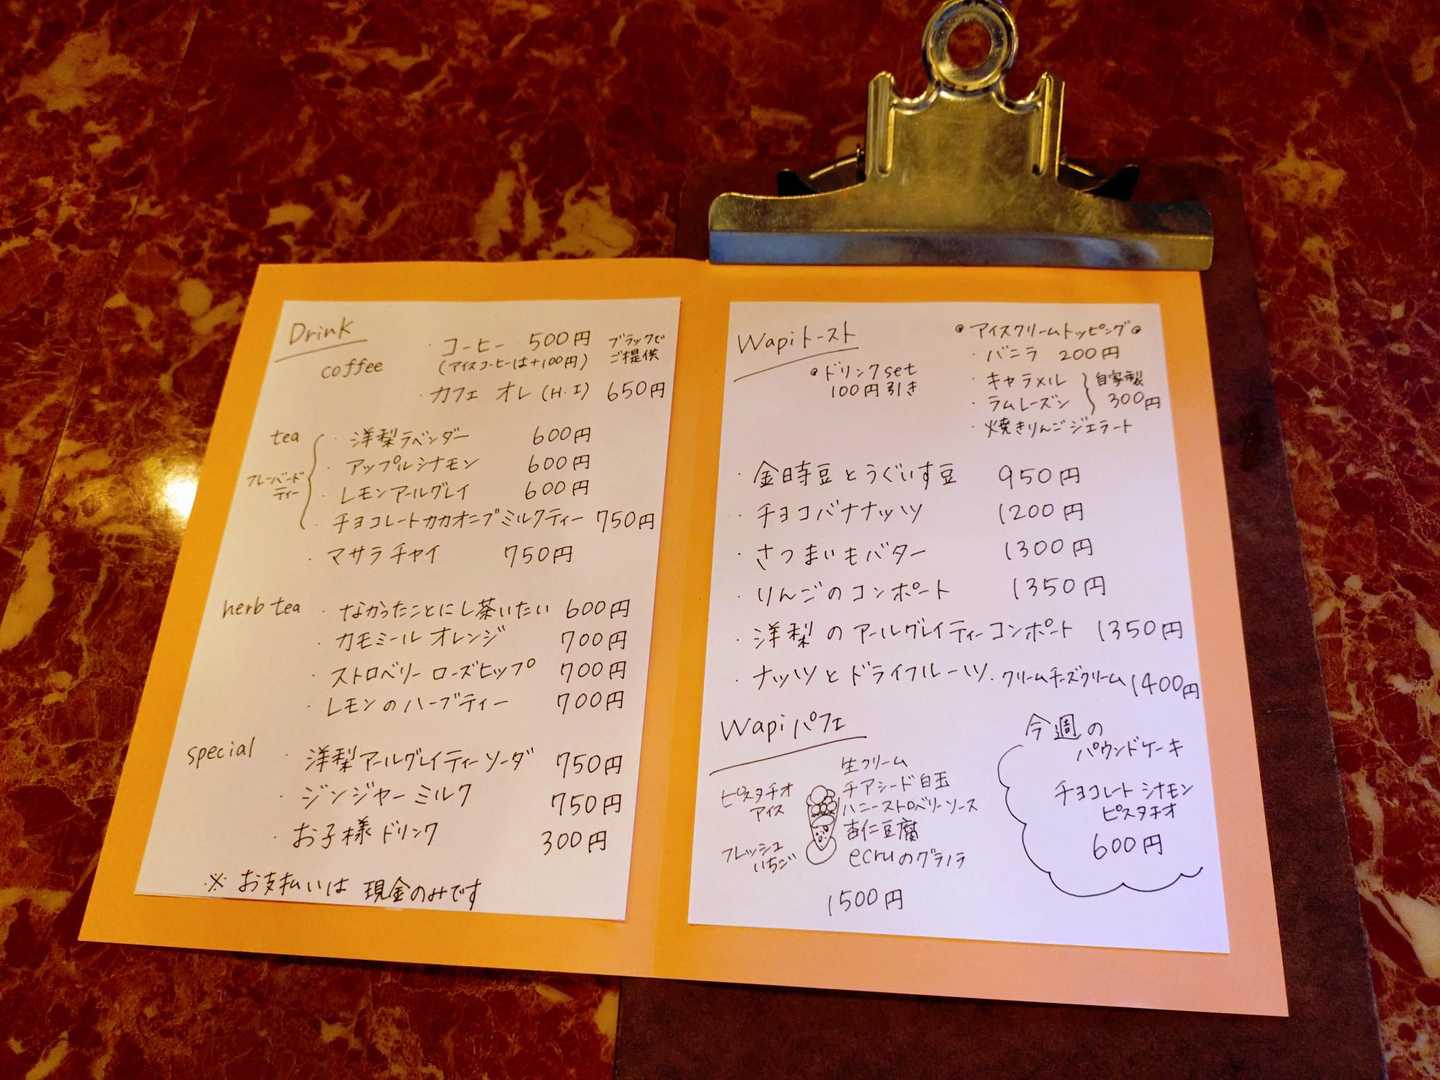 Drink
coffee
・コーヒー 500円 ブラックで
(アイスコーヒーは+100円) ご提供
・カフェ オレ (H・I) 650円
tea
フレーバード
ティー
・洋梨ラベンダー 600円
・アップルシナモン 600円
・レモンアールグレイ 600円
・チョコレートカカオニブミルクティー 750円
・マサラチャイ 750円
herb tea
・なかったことにし茶いたい 600円
・カモミール オレンジ 700円
・ストロベリー ローズヒップ 700円
・レモンのハーブティー 700円
special
・洋梨アールグレイティーソーダ 750円
・ジンジャーミルク 750円
・お子様ドリンク 300円
※ お支払いは 現金のみです
Wapiトースト
●ドリンクset
100円引き
●アイスクリームトッピング●
・バニラ 200円
・キャラメル
・ラムレーズン
自家製
300円
・焼きりんごジェラート
・金時豆とうぐいす豆 950円
・チョコバナナナッツ 1200円
・さつまいもバター 1300円
・りんごのコンポート 1350円
・洋梨のアールグレイティーコンポート 1350円
・ナッツとドライフルーツ・クリームチーズクリーム 1400円
Wapiパフェ
ピスタチオ
アイス
フレッシュ
いちご
生クリーム
チアシード白玉
ハニーストロベリーソース
杏仁豆腐
ecruのグラノラ
1500円
今週の
パウンドケーキ
チョコレート シナモン
ピスタチオ
600円